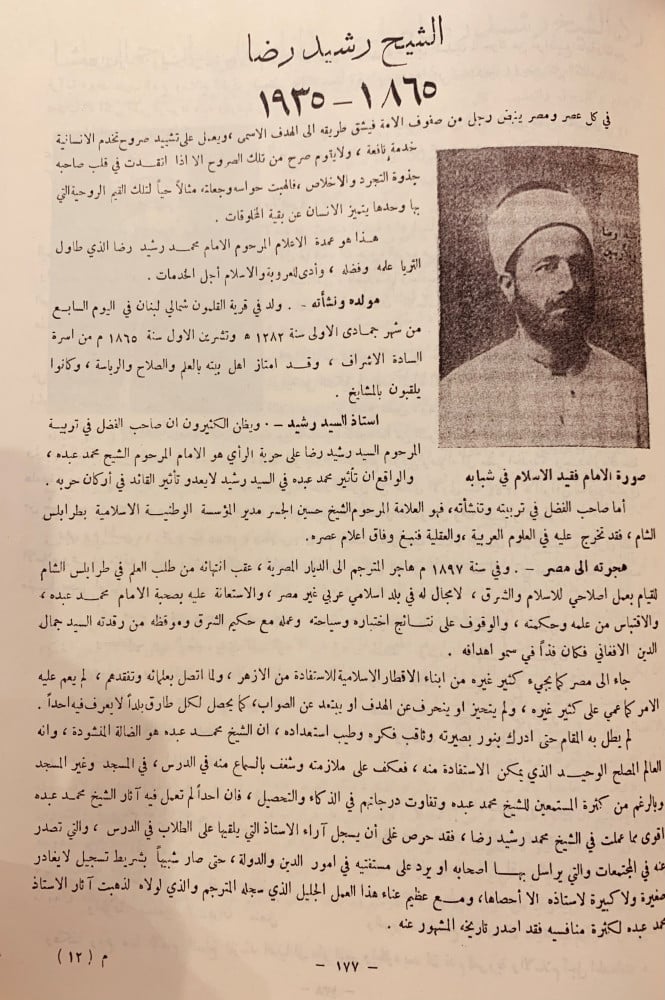 الشيخ رشيد رضا
١٨٦٥ - ١٩٣٥
في كل عصر ومصر ينهض رجل من صفوف الامة فيشق طريقه الى الهدف الاسمى ، ويعمل على تشييد صروح تخدم الانسانية
خدمة نافعة ، ولايقوم صرح من تلك الصروح الا اذا انقدت في قلب صاحبه
جذوة التجرد والاخلاص ، فالهبت حواسه وجعلته مثالاً حياً لتلك القيم الروحية التي
بها وحدها يتميز الانسان عن بقية المخلوقات .
هذا هو عمدة الاعلام المرحوم الامام محمد رشيد رضا الذي طاول
الثريا علمه وفضله ، وأدى للعروبة والاسلام أجل الخدمات .
مولده ونشأته - . ولد في قرية القلمون شمالي لبنان في اليوم السابع
من شهر جمادى الاولى سنة ١٢٨٢ ه وتشرين الاول سنة ١٨٦٥ م من اسرة
السادة الاشراف ، وقد امتاز اهل بيته بالعلم والصلاح والرياسة ، وكانوا
يلقبون بالمشايخ .
استاذ السيد رشيد - . ويظن الكثيرون ان صاحب الفضل في تربية
المرحوم السيد رشيد رضا على حرية الرأي هو الامام المرحوم الشيخ محمد عبده ،
والواقع ان تأثير محمد عبده في السيد رشيد لايعدو تأثير القائد في أركان حربه .
صورة الامام فقيد الاسلام في شبابه
أما صاحب الفضل في تربيته وتنشأته ، فهو العلامة المرحوم الشيخ حسين الجسر مدير المؤسسة الوطنية الاسلامية بطرابلس
الشام ، فقد تخرج عليه في العلوم العربية ، والعقلية فنبغ وفاق اعلام عصره.
هجرته الى مصر - . وفي سنة ١٨٩٧ م هاجر المترجم الى الديار المصرية ، عقب انتهائه من طلب العلم في طرابلس الشام
للقيام بعمل اصلاحي للاسلام والشرق ، لامجال له في بلد اسلامي عربي غير مصر ، والاستعانة عليه بصحبة الامام محمد عبده ،
والاقتباس من علمه وحكمته ، والوقوف على نتائج اختباره وسياحته وعمله مع حكيم الشرق وموقظه من رقدته السيد جمال
الدين الافغاني فكان فذاً في سمو اهدافه .
جاء الى مصر كما يجيء كثير غيره من ابناء الاقطار الاسلامية للاستفادة من الازهر ، ولما اتصل بعلمائه وتفقدهم ، لم يعم عليه
الامر كما عمي على كثير غيره ، ولم يتحيز او ينحرف عن الهدف او يبتعد عن الصواب، كما يحصل لكل طارق بلداً لا يعرف فيه احداً .
لم يطل به المقام حتى ادرك بنور بصيرته وثاقب فكره وطيب استعداده ، ان الشيخ محمد عبده هو الضالة المنشودة ، وانه
العالم المصلح الوحيد الذي يمكن الاستفادة منه ، فعكف على ملازمته وشغف بالسماع منه في الدرس ، في المسجد وغير المسجد
وبالرغم من كثرة المستمعين للشيخ محمد عبده وتفاوت درجاتهم في الذكاء والتحصيل ، فان احداً لم تعمل فيه آثار الشيخ محمد عبده
اقوى مما عملت في الشيخ محمد رشيد رضا ، فقد حرص على أن يسجل آراء الاستاذ التي يلقيها على الطلاب في الدرس ، والتي تصدر
عنه في المجتمعات والتي يراسل بها اصحابه او يرد على مستفتيه في امور الدين والدولة ، حتى صار شبيهاً بشريط تسجيل لايغادر
صغيرة ولا كبيرة لاستاذه الا أحصاها، ومع عظيم عناء هذا العمل الجليل الذي سجله المترجم والذي لولاه لذهبت آثار الاستاذ
محمد عبده لكثرة منافسيه فقد اصدر تاريخه المشهور عنه .
- ١٧٧ -
م ( ١٢ )